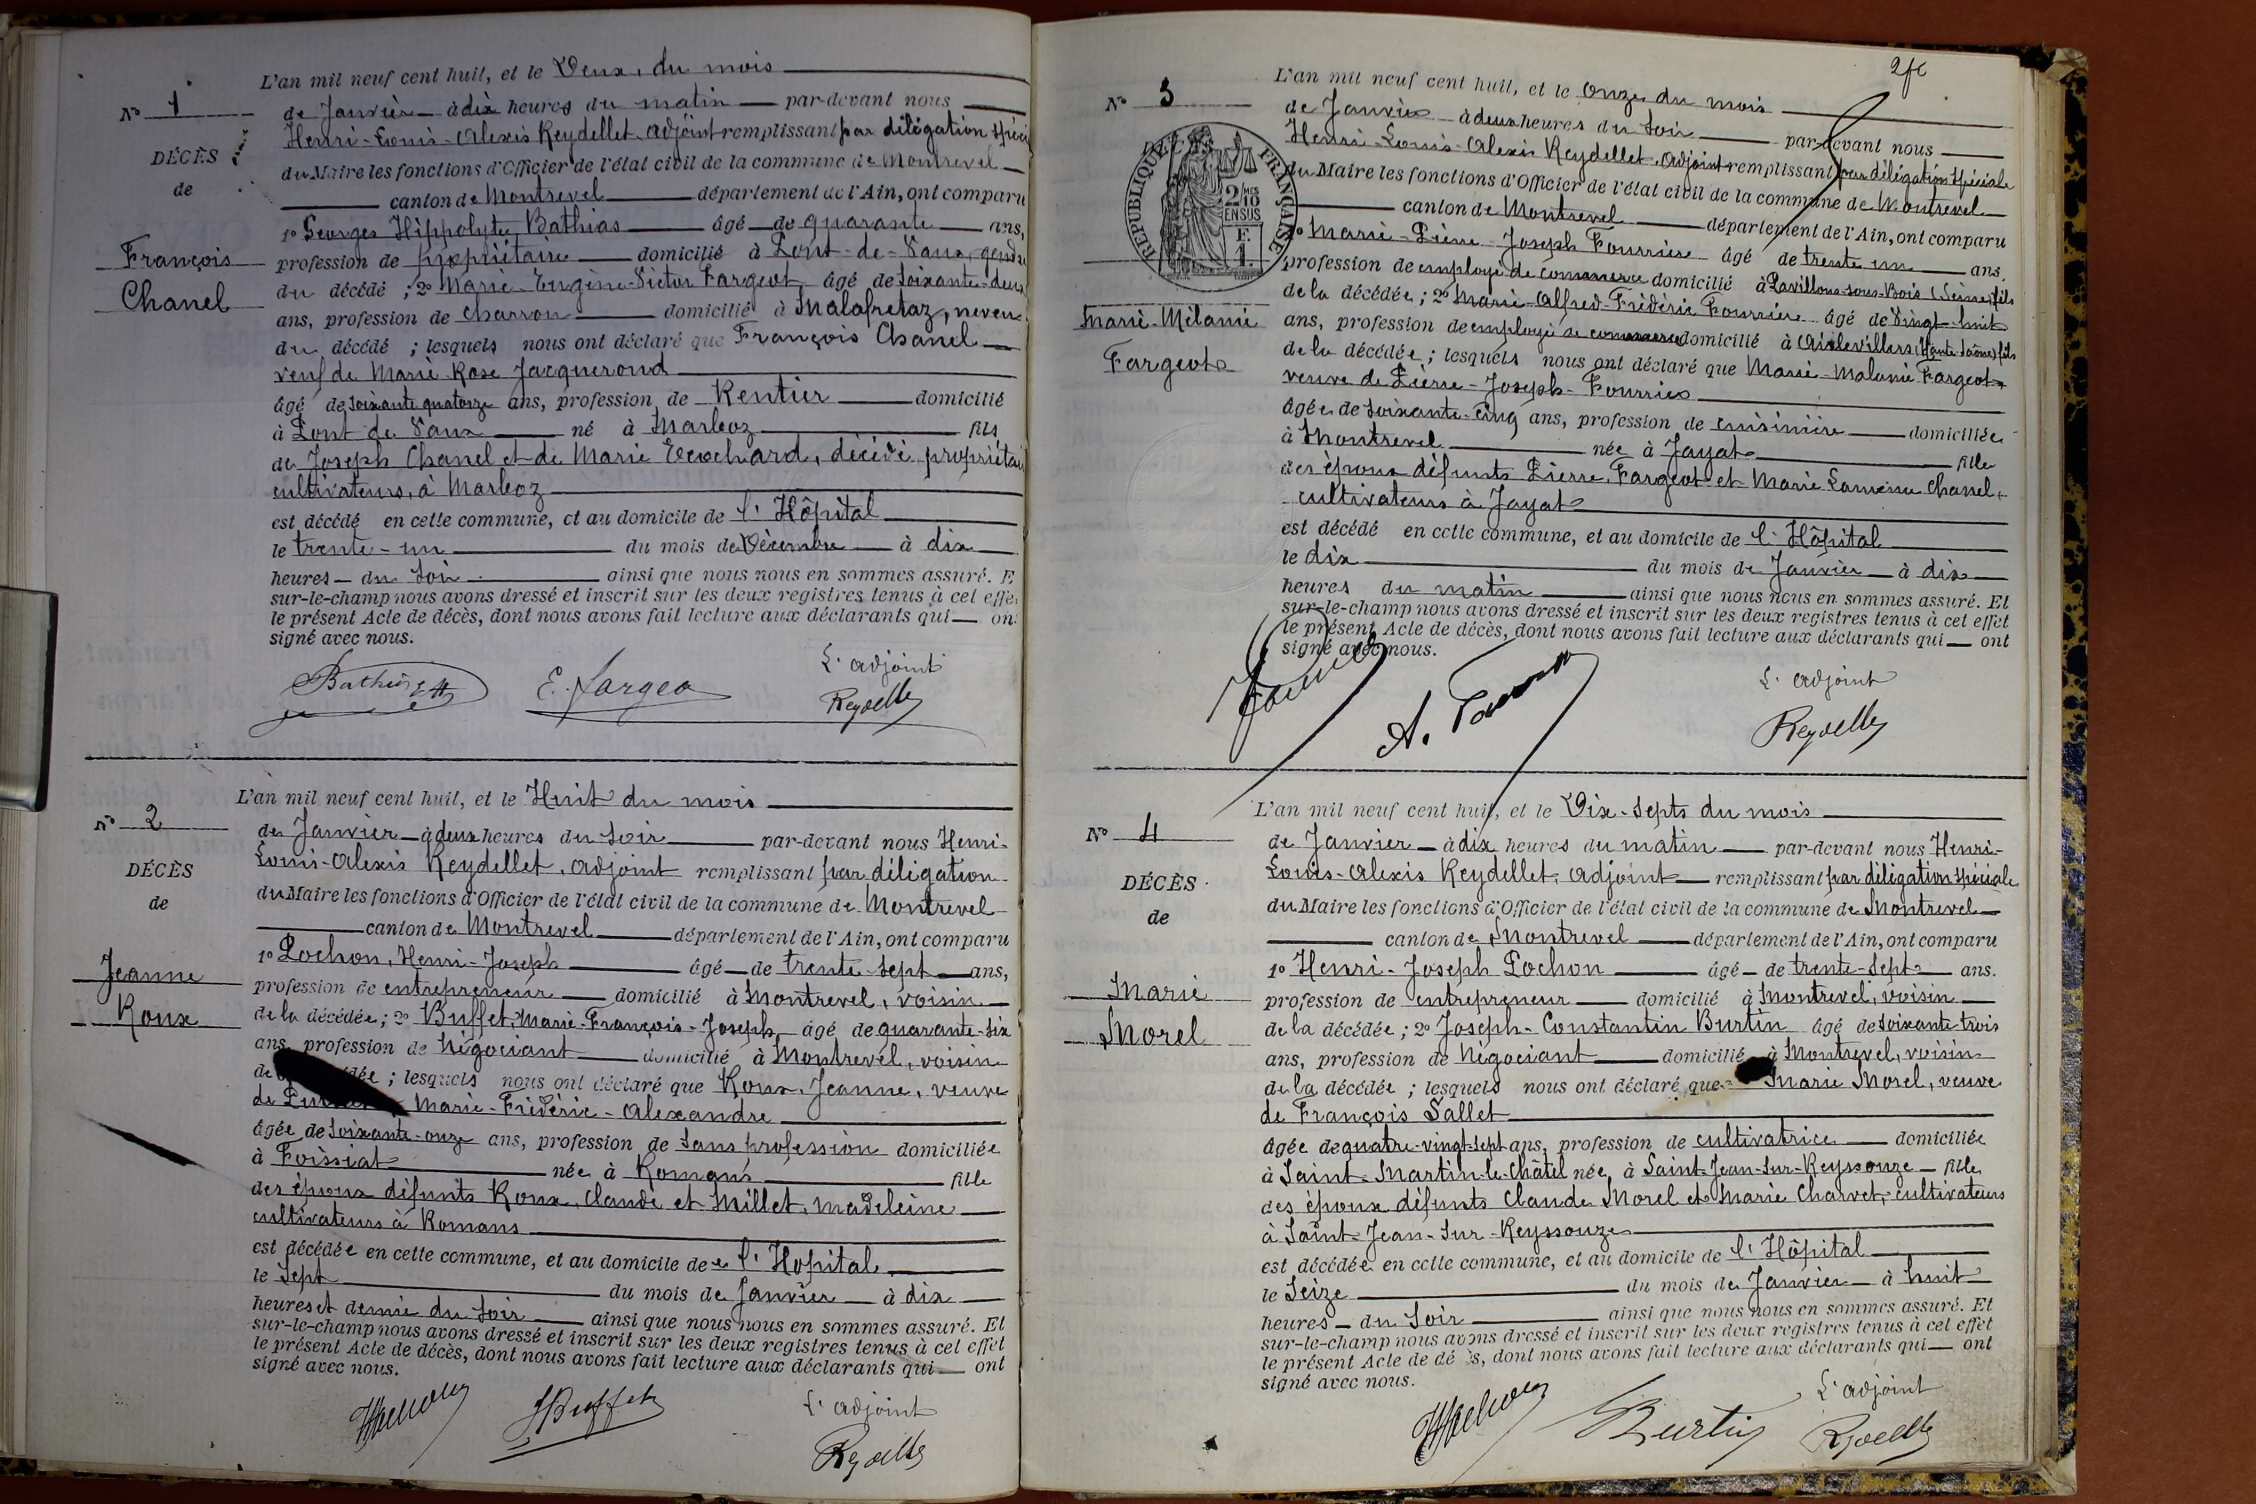 L'an mil neuf cent huit, et le Deux, du mois
N° 1
de Janvier à dix heures du matin par-devant nous
Henri-Louis-Alexis Reydellet, adjoint remplissant par délégation spéci
DÉCÈS
du Maire les fonctions d'Officier de l'état civil de la commune de Montrevel
de
canton de Montrevel département de l'Ain, ont comparu
1° Georges Hippolyte Bathias âgé de quarante ans,
François
profession de propriétaire domicilié à Pont-de-Vaux, gendre
Chanel
du décédé ; 2° Marie-Eugène-Victor Fargeot, âgé de soixante-deux
ans, profession de charron domicilié à Malafretaz, neveu
du décédé ; lesquels nous ont déclaré que François Chanel
veuf de Marie Rose Jacquerond
âgé de soixante quatorze ans, profession de Rentier domicilié
à Pont de Vaux né à Marboz fils
de Joseph Chanel et de Marie décédé, propriétai
cultivateurs, à Marboz
est décédé en cette commune, et au domicile de l'Hôpital
le trente-un du mois de Décembre à dix
heures du soir ainsi que nous nous en sommes assuré. E
sur-le-champ nous avons dressé et inscrit sur les deux registres tenus à cet effe
le présent Acte de décès, dont nous avons fait lecture aux déclarants qui on
signé avec nous.
Bathias
E. Fargeo
L'adjoint
Reydellet
L'an mil neuf cent huit, et le Huit du mois
N° 2
de Janvier à deux heures du soir par-devant nous Henri-
Louis-Alexis Reydellet, adjoint remplissant par délégation
DÉCÈS
du Maire les fonctions d'Officier de l'état civil de la commune de Montrevel
de
canton de Montrevel département de l'Ain, ont comparu
1° Pochon, Henri-Joseph âgé de trente-sept ans,
Jeanne
profession de entrepreneur domicilié à Montrevel, voisin
Roux
de la décédée ; 2° Buffet, Marie-François-Joseph âgé de quarante-six
ans, profession de Négociant domicilié à Montrevel, voisin
de dée ; lesquels nous ont déclaré que Roux, Jeanne, veuve
de Marie-Frédéric-Alexandre
âgée de soixante-onze ans, profession de sans profession domiciliée
à Foissiat née à Romans fille
des époux défunts Roux, Claude et Millet, Madeleine
cultivateurs à Romans
est décédée en cette commune, et au domicile de l'Hopital
le sept du mois de Janvier à dix
heures et demie du soir ainsi que nous nous en sommes assuré. Et
sur-le-champ nous avons dressé et inscrit sur les deux registres tenus à cet effet
le présent Acte de décès, dont nous avons fait lecture aux déclarants qui ont
signé avec nous.
HPochon
JBuffet
L'adjoint
Reydellet
L'an mil neuf cent huit, et le onze du mois
N° 3
de Janvier à deux heures du soir par-devant nous
Henri-Louis-Alexis Reydellet, adjoint remplissant par délégation spéciale
RÉPUBLIQUE FRANÇAISE
2/10 EN SUS
F. 1.
du Maire les fonctions d'Officier de l'état civil de la commune de Montrevel
canton de Montrevel département de l'Ain, ont comparu
1° Marie-Pierre-Joseph Fourrier âgé de trente un ans.
profession de employé de commerce domicilié à Pavillons-sous-Bois (Seine) fils
de la décédée ; 2° Marie-Alfred-Frédéric Fourrier âgé de vingt-huit
Marie-Mélanie
ans, profession de employé de commerce domicilié à Aillevillers (Haute Saône) fils
Fargeot
de la décédée ; lesquels nous ont déclaré que Marie-Malanie Fargeot
veuve de Pierre-Joseph-Fourrier
âgée de soixante-cinq ans, profession de cuisinière domiciliée
à Montrevel née à Jayat fille
des époux défunts Pierre Fargeot et Marie Chanel,
cultivateurs à Jayat
est décédé en cette commune, et au domicile de l'Hôpital
le dix du mois de Janvier à dix
heures du matin ainsi que nous nous en sommes assuré. Et
sur-le-champ nous avons dressé et inscrit sur les deux registres tenus à cet effet
le présent Acte de décès, dont nous avons fait lecture aux déclarants qui ont
signé avec nous.
L'adjoint
Reydellet
L'an mil neuf cent huit, et le Dix-sept du mois
N° 4
de Janvier à dix heures du matin par-devant nous Henri-
Louis-Alexis Reydellet, adjoint remplissant par délégation spéciale
DÉCÈS
du Maire les fonctions d'Officier de l'état civil de la commune de Montrevel
de
canton de Montrevel département de l'Ain, ont comparu
1° Henri-Joseph Pochon âgé de trente-sept ans.
Marie
profession de entrepreneur domicilié à Montrevel, voisin
Morel
de la décédée ; 2° Joseph-Constantin Burtin âgé de soixante-trois
ans, profession de Négociant domicilié à Montrevel, voisin
de la décédée ; lesquels nous ont déclaré que Marie Morel, veuve
de François Sallet
âgée de quatre-vingt-sept ans, profession de cultivatrice domiciliée
à Saint-Martin-le-Châtel née à Saint-Jean-sur-Reyssouze fille
des époux défunts Claude Morel et Marie Charvet, cultivateurs
à Saint-Jean-sur-Reyssouze
est décédée en cette commune, et au domicile de l'Hôpital
le Seize du mois de Janvier à huit
heures du soir ainsi que nous nous en sommes assuré. Et
sur-le-champ nous avons dressé et inscrit sur les deux registres tenus à cet effet
le présent Acte de dé ès, dont nous avons fait lecture aux déclarants qui ont
signé avec nous.
HPochon
Burtin
L'adjoint
Reydellet